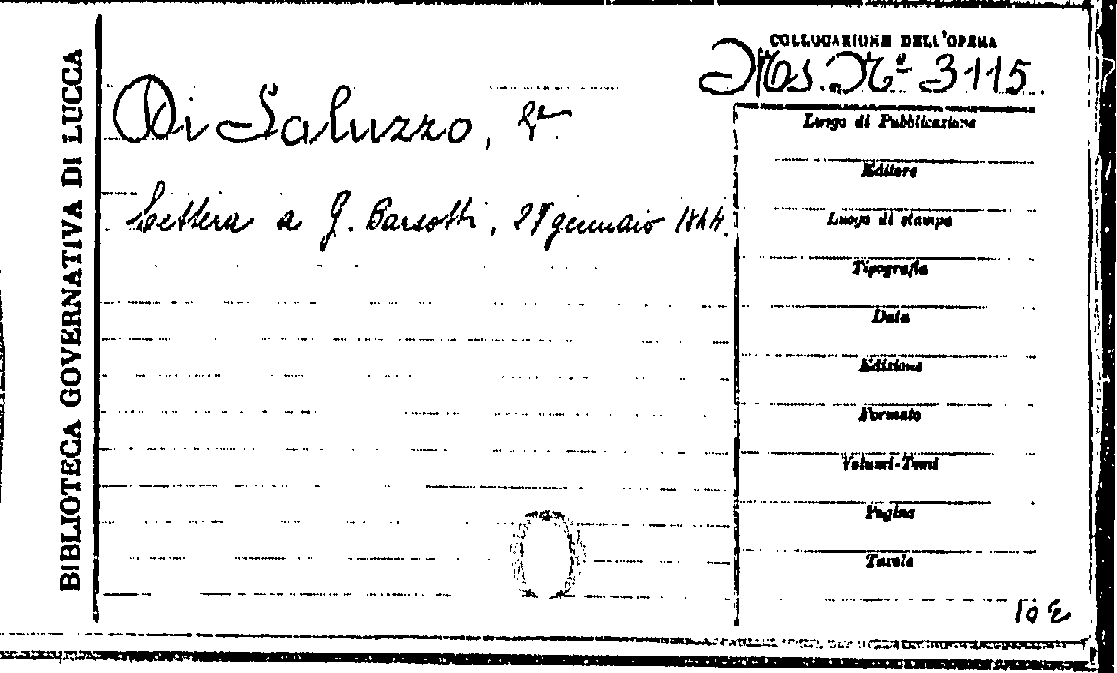 BIBLIOTECA GOVERNATIVA DI LUCCA
COLLOCAZIONE DELL'OPERA
Ms. Nº 3115
Di Saluzzo,
Lettera a G. Barsotti, gennaio 1844.
Luogo di Pubblicazione
Editore
Luogo di stampa
Tipografia
Data
Edizione
Formato
Volumi-Tomi
Pagine
Tavole